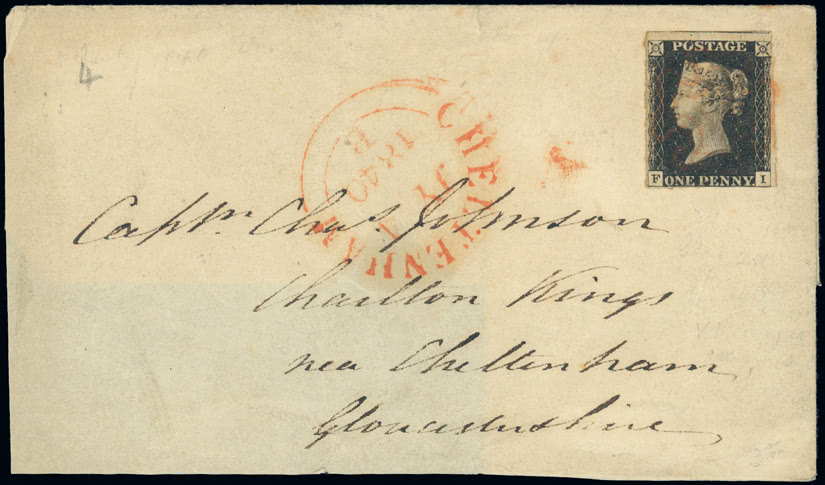 4
POSTAGE
F ONE PENNY I
CHELTENHAM
JY
1
1840
Capt^n. Cha^s. Johnson
Charlton Kings
near Cheltenham
Gloucestershire